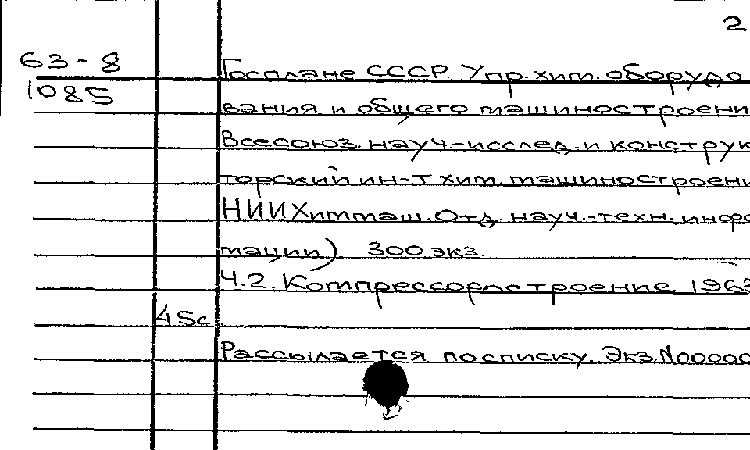 2
63-8 Госплане СССР. Упр. хим. оборудо
1085
вания и общего машиностроени
Всесоюз. науч-исслед. и конструк
торский ин-т хим. машиностроени
НИИХиммаш. Отд. науч.-техн. инфо
мации). 300 экз.
Ч.2. Компрессоростроение. 1963
45с
Рассылается по списку. Экз.N00000